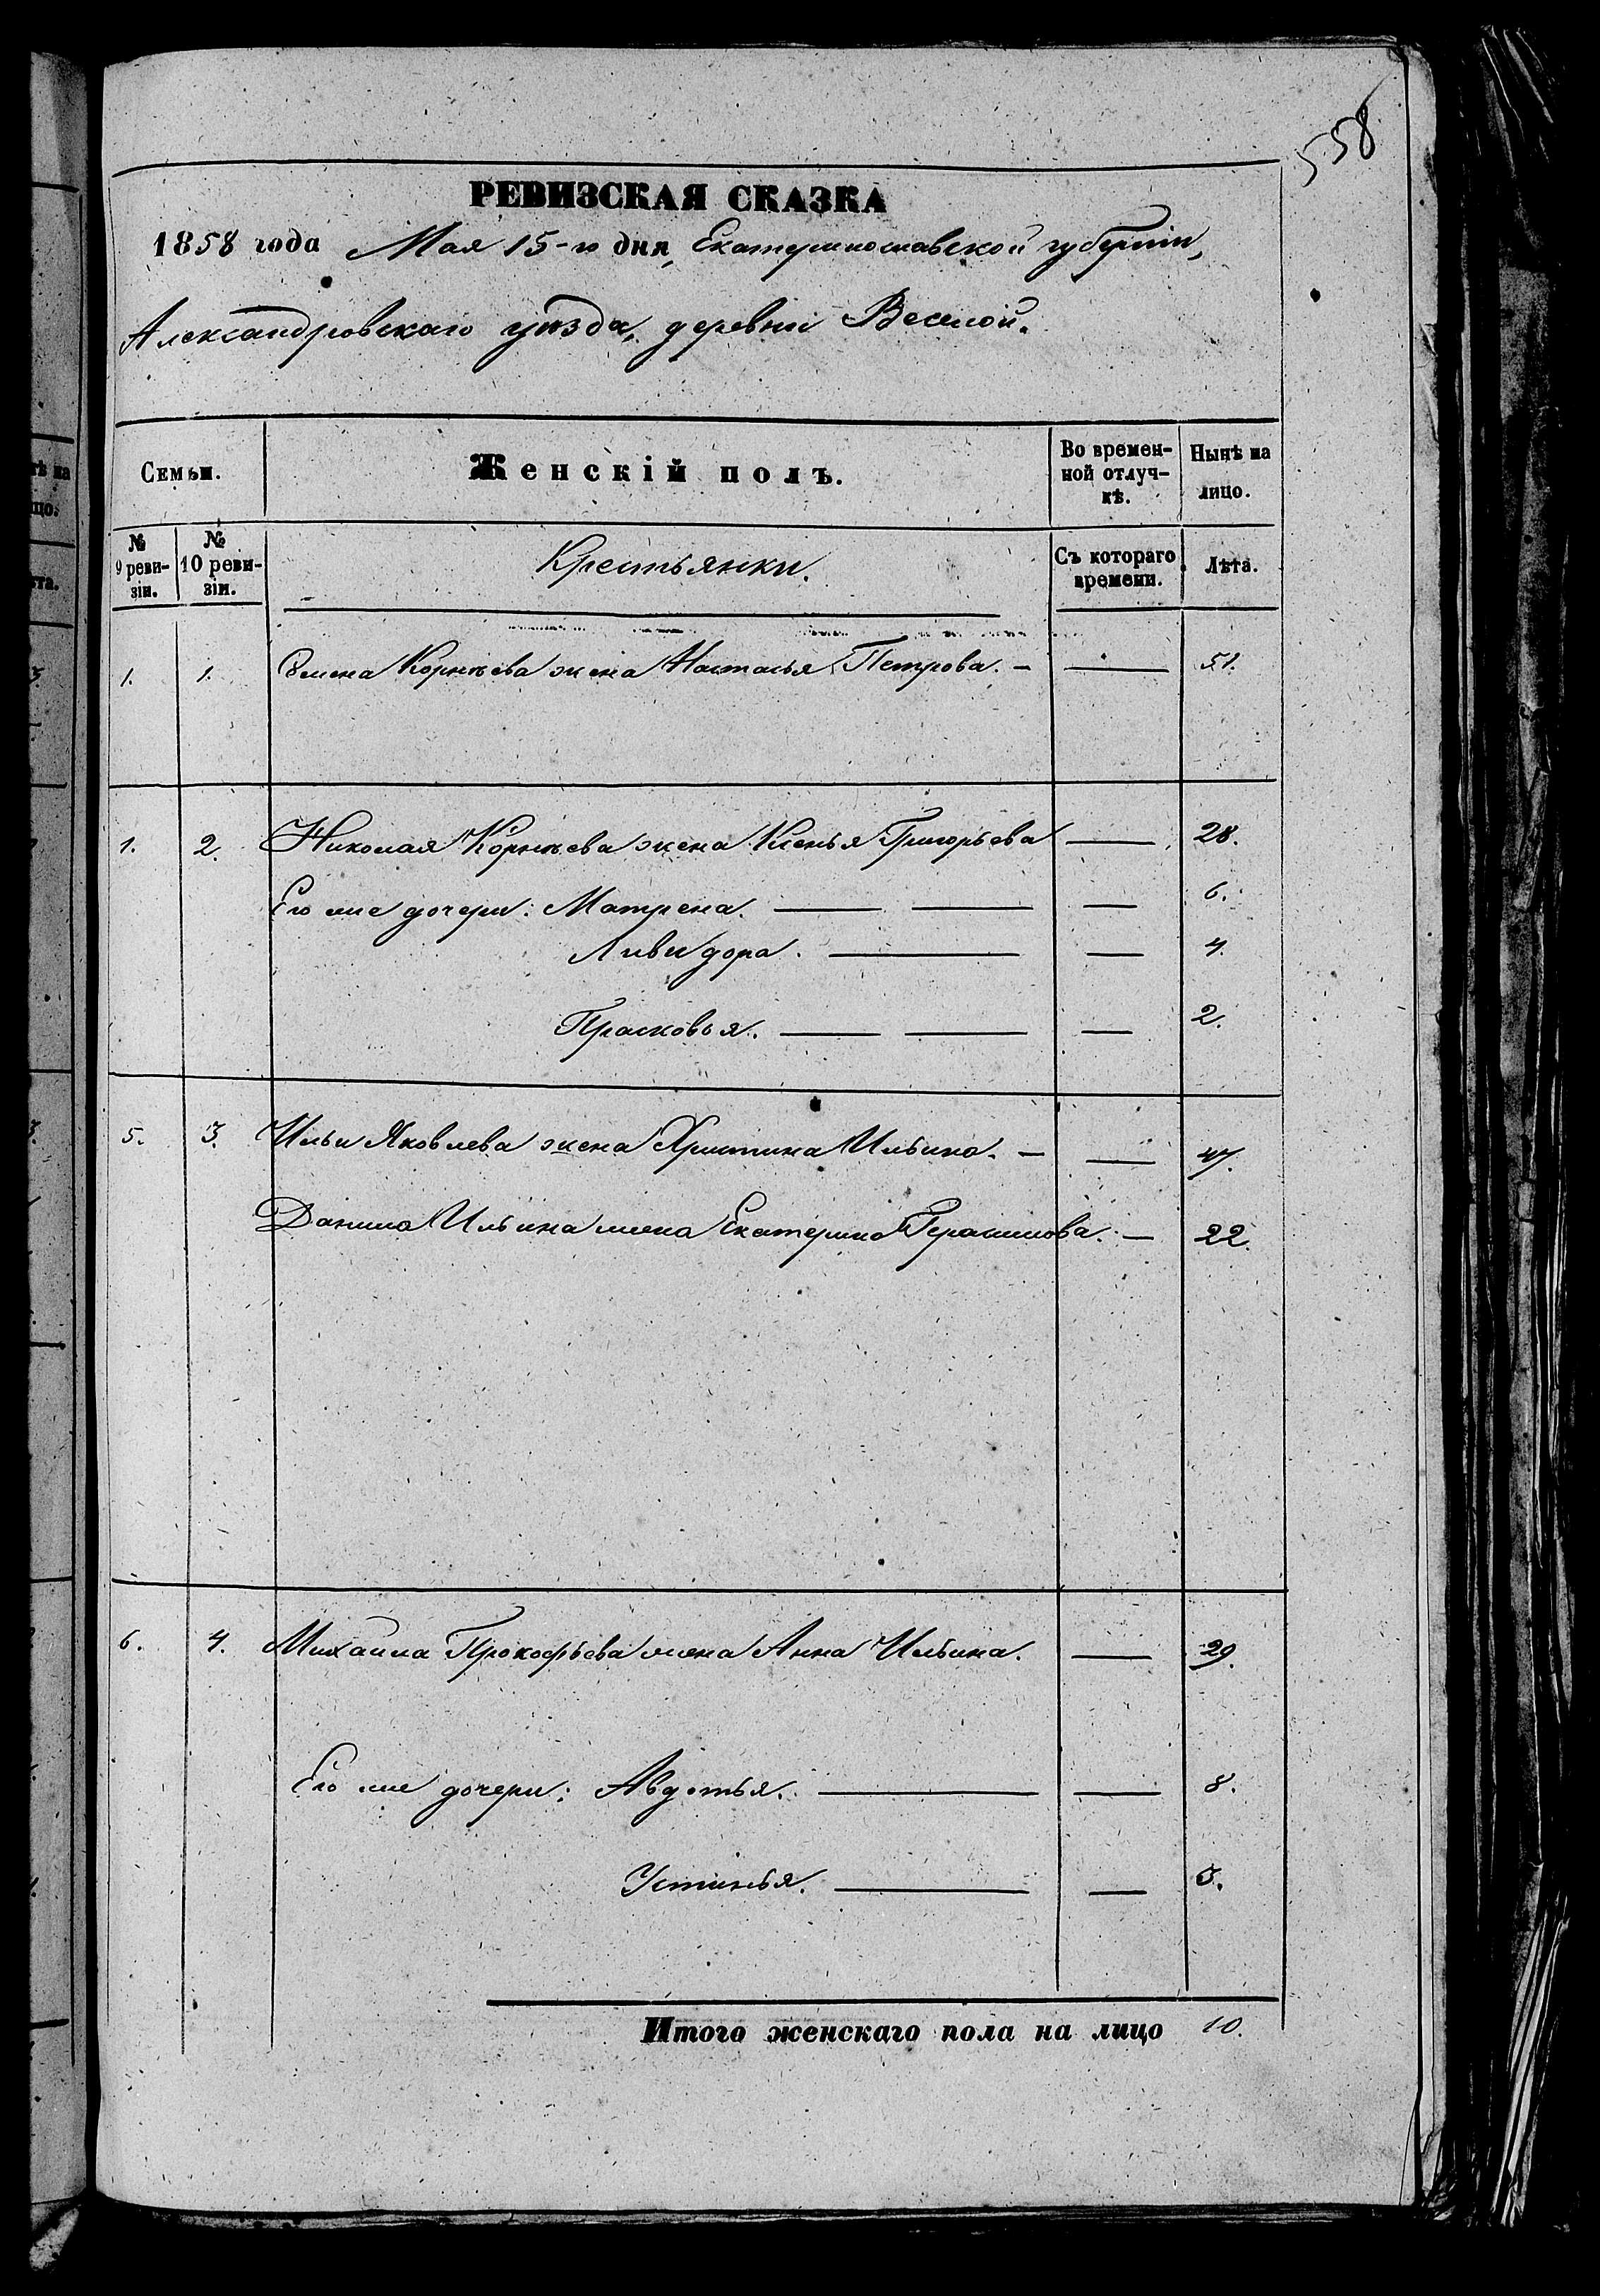 558
РЕВИЗСКАЯ СКАЗКА
1858 года Мая 15-го дня, Екатеринославской губерніи,
Александровскаго уѣзда, деревни Веселой.
Семьи. Женскій полъ. Во временной отлучкѣ. Нынѣ на лицо.
№ 9 ревизіи. № 10 ревизіи. Крестьянки. Съ котораго времени. Лѣта.
1. 1. Семена Корнѣева жена Настасья Петрова. — — 51.
1. 2. Николая Корнѣева жена Ксенья Григорьева — 28.
Его же дочери: Матрена. — — — 6.
Ливидора. — — 4.
Прасковья. — — — 2.
5. 3. Ильи Яковлева жена Христина Ильина. — — 47.
Данила Ильина жена Екатерина Герасимова. — 22.
6. 4. Михаила Прокофьева жена Анна Ильина. — 29.
Его же дочери: Авдотья. — — 8.
Устинья. — — 5.
Итого женскаго пола на лицо 10.